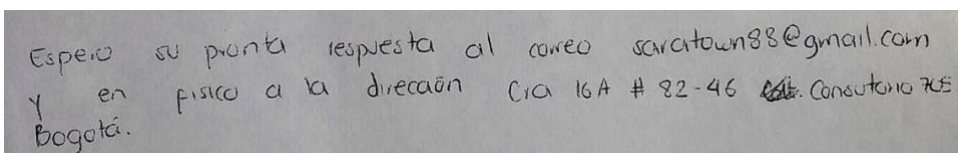 Espero su pronta respuesta al correo saratown88@gmail.com
y en fisico a la dirección Cra 16A # 82-46 Consultorio 705
Bogotá.